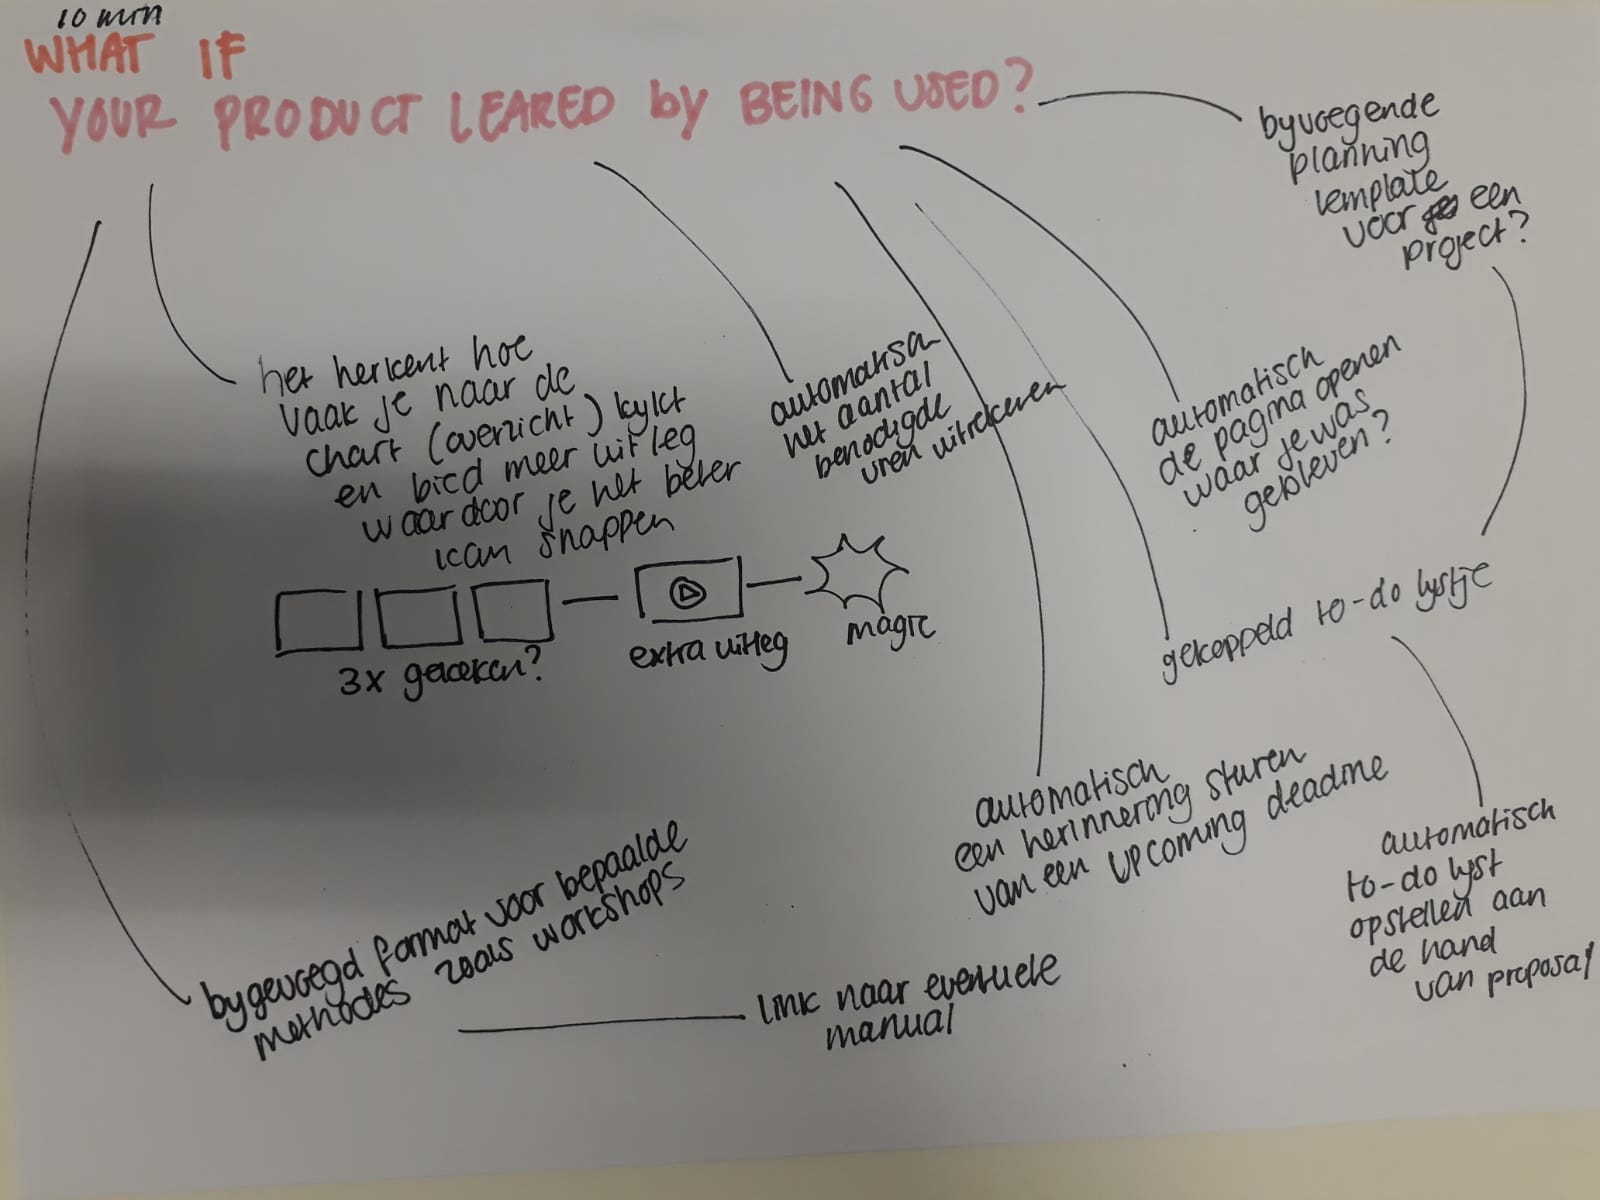 10 min
WHAT IF
YOUR PRODUCT LEARED by BEING USED?
byvoegende
planning
template
voor een
project?
het herkent hoe
vaak je naar de
chart (overzicht) kykt
en bied meer uitleg
waardoor je het beter
kan snappen
3x gekeken?
extra uitleg
magic
automatisch
het aantal
benodigde
uren uitrekenen
automatisch
de pagina openen
waar je was
gebleven?
gekoppeld to-do lystje
automatisch
een herinnering sturen
van een upcoming deadline
automatisch
to-do lyst
opstellen aan
de hand
van proposal
bygevoegd format voor bepaalde
methodes zoals workshops
link naar eventuele
manual